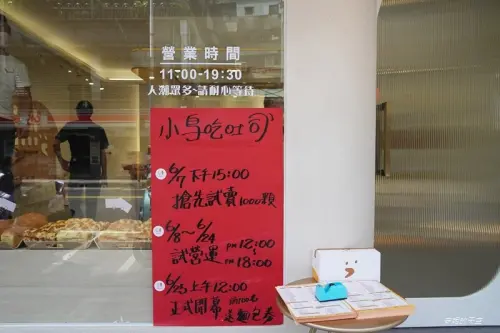 營業時間
11:00-19:30
人潮眾多・請耐心等待
小島吃吐司
6/7 下午15:00
搶先試賣1000顆
6/8~6/24
試營運 PM 12:00
~
PM 18:00
6/25 上午12:00
正式開幕 前100名
送麵包卷